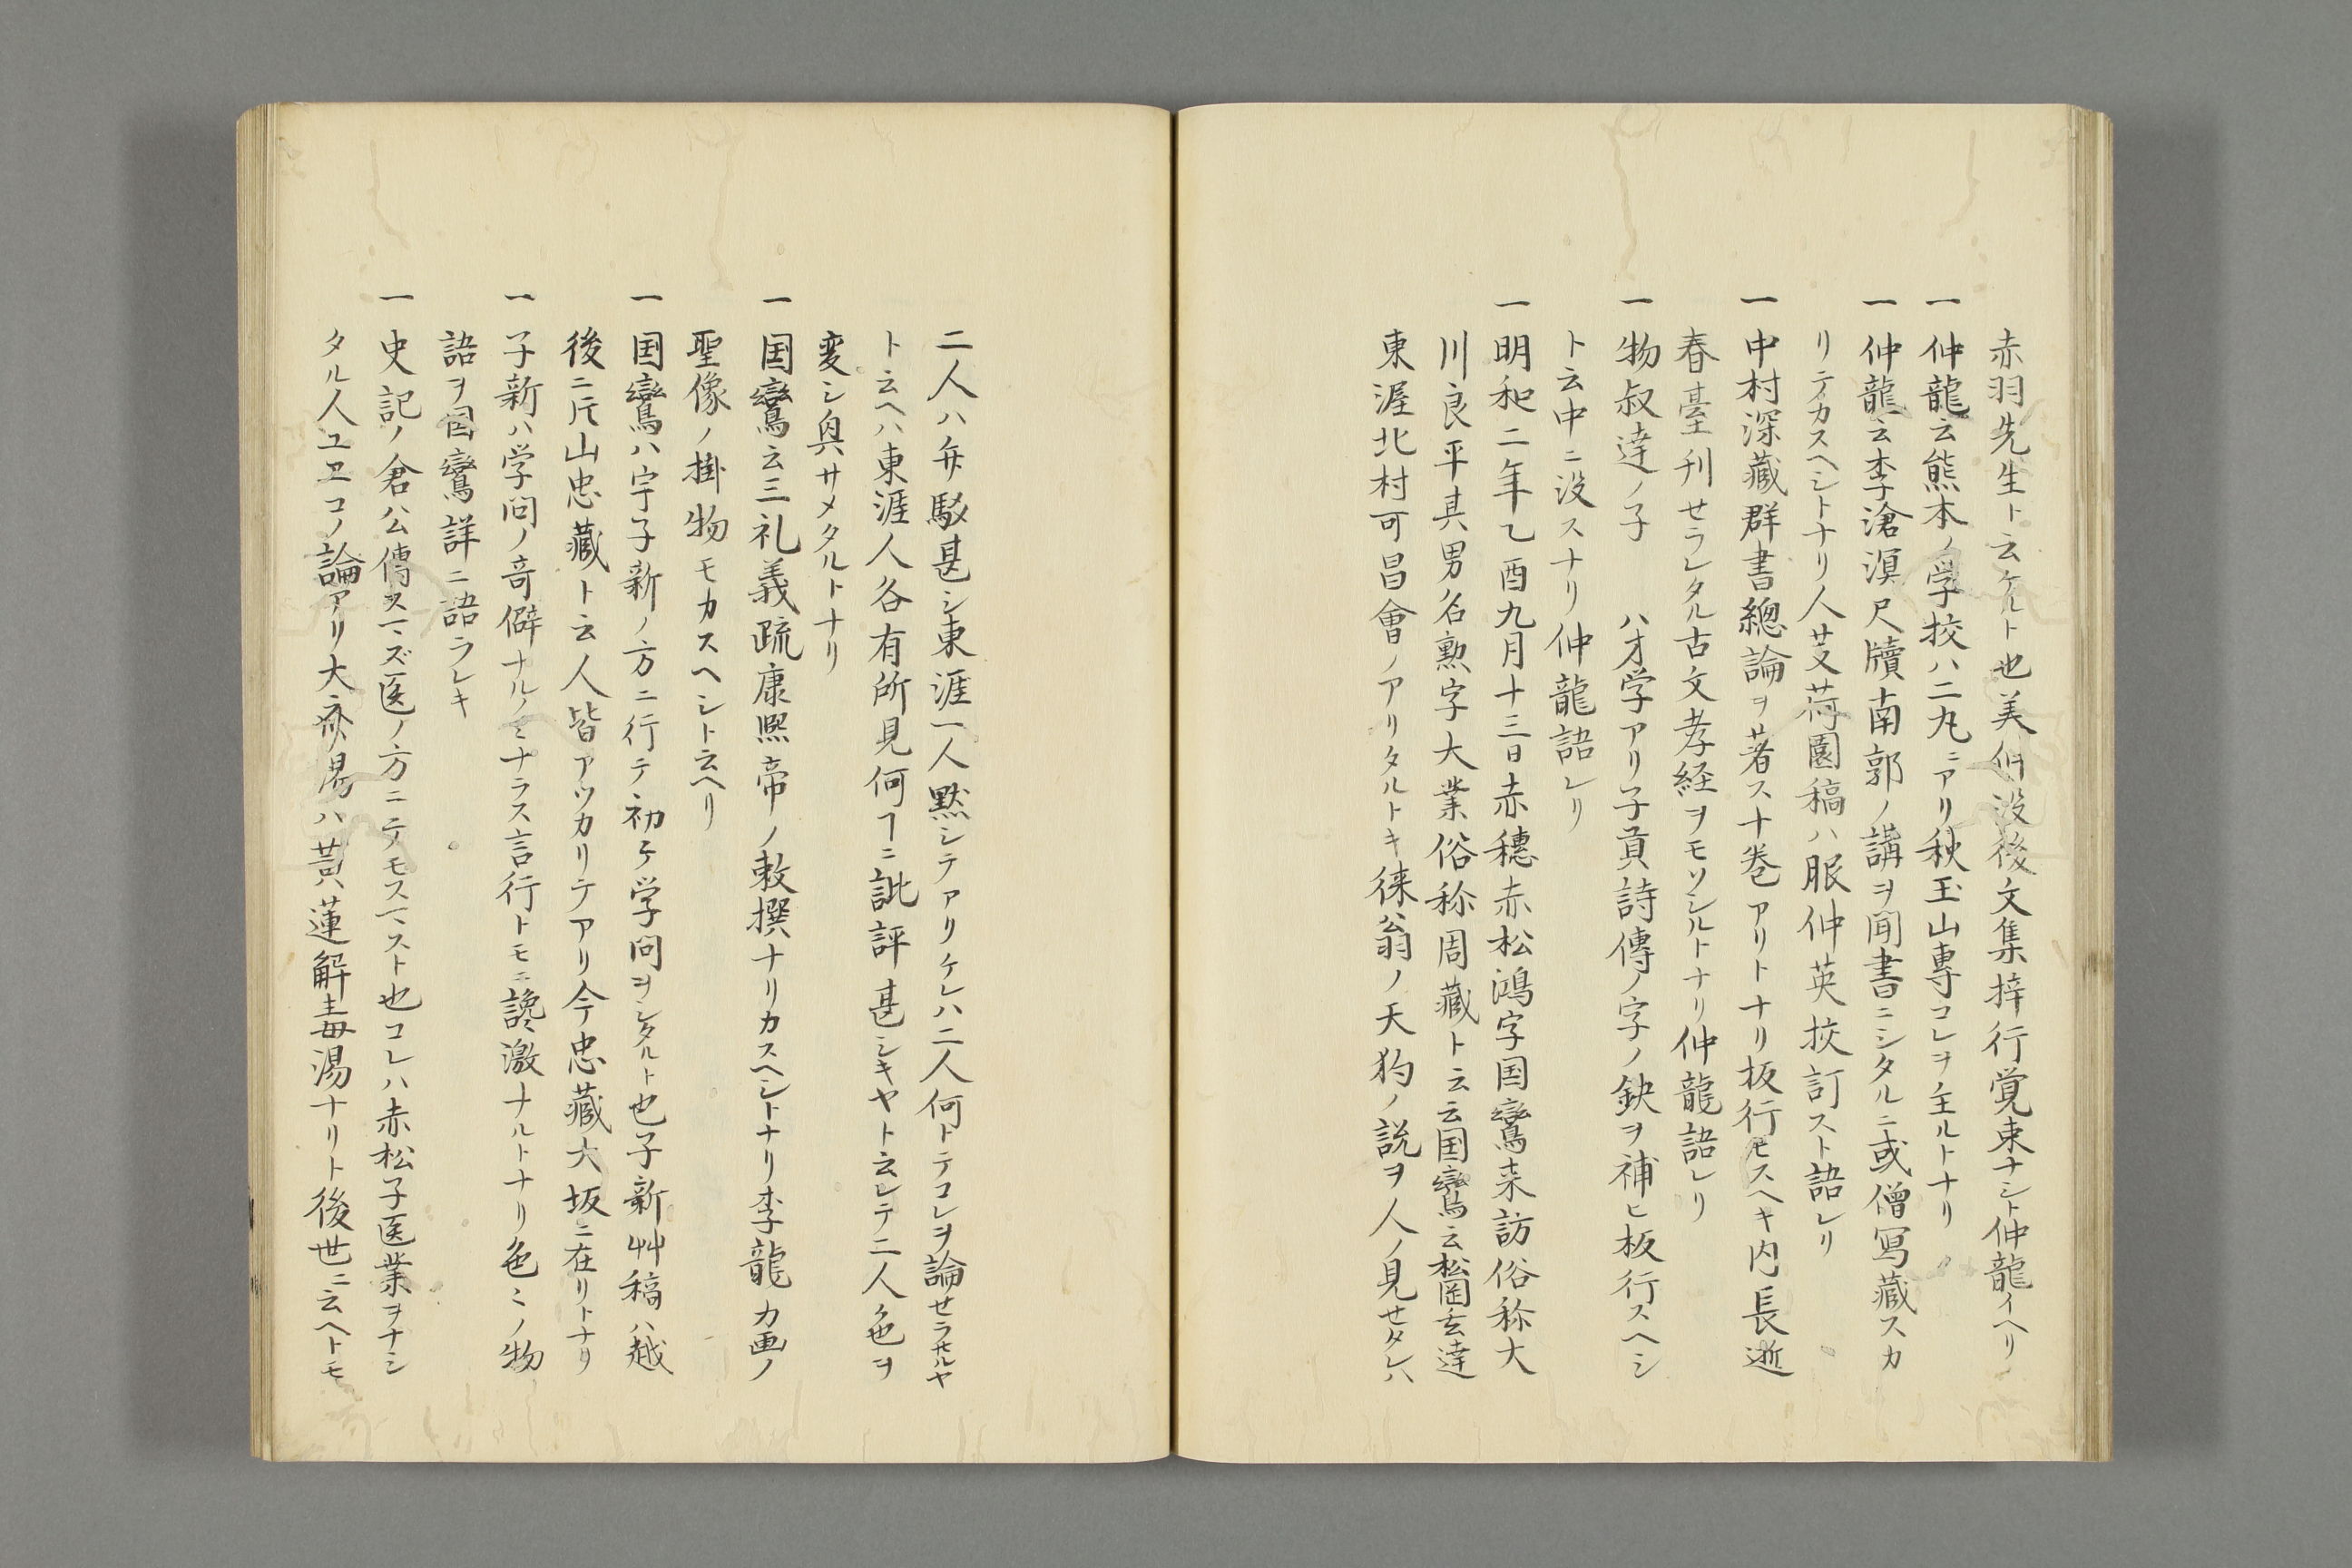 赤羽先生ト云ケルト也美仲没後文集梓行覚束ナシト仲龍イヘリ
一仲龍云熊本ノ学挍ハ二丸ニアリ秋玉山專コレヲ主ルトナリ
一仲龍云李滄溟尺牘南郭ノ講ヲ聞書ニシタルニ或僧写藏スカ
リテカスヘシトナリ人芟荷園稿ハ服仲英挍訂スト語レリ
一中村深藏群書總論ヲ著ス十巻アリトナリ板行モスヘキ内長逝
春臺刊せラレタル古文孝経ヲモソシルトナリ仲龍語レリ
一物叔達ノ子 ハ才学アリ子貢詩傳ノ字ノ鈌ヲ補ヒ板行スヘシ
ト云中ニ没スナリ仲龍語レリ
一明和二年乙酉九月十三日赤穗赤松鴻字国鸞来訪俗称大
川良平其男名勲字大業俗称周藏ト云云国鸞云松岡玄達
東渥北村可昌會ノアリタルトキ徠翁ノ天狗ノ説ヲ人ノ見せタレハ
二人ハ弁駁甚シ東涯一人黙シテアリケレハ二人何トテコレヲ論せラサルヤ
ト云ヘハ東涯人各有所見何ヿニ訿評甚シキヤト云レテ二人色ヲ
変シ興サメタルトナリ
一国鸞云三礼義疏康熙帝ノ敕撰ナリカスヘシトナリ李龍カ画ノ
聖像ノ掛物モカスヘシト云ヘリ
一国鸞ハ宇子新ノ方ニ行テ初ケ学問ヲシタルト也子新艸稿ハ越
後ニ片山忠藏ト云人皆アツカリテアリ今忠藏大坂ニ在リトナリ
一子新ハ学問ノ奇僻ナルノミナラス言行トモニ讒激ナルトナリ色〻ノ物
語ヲ国鸞詳ニ語ラレキ
一史記ノ倉公傳ヌマズ医ノ方ニテモスマスト也コレハ赤松子医業ヲナシ
タル人ユヱコノ論アリ大齊湯ハ黄蓮解毒湯ナリト後世ニ云ヘトモ